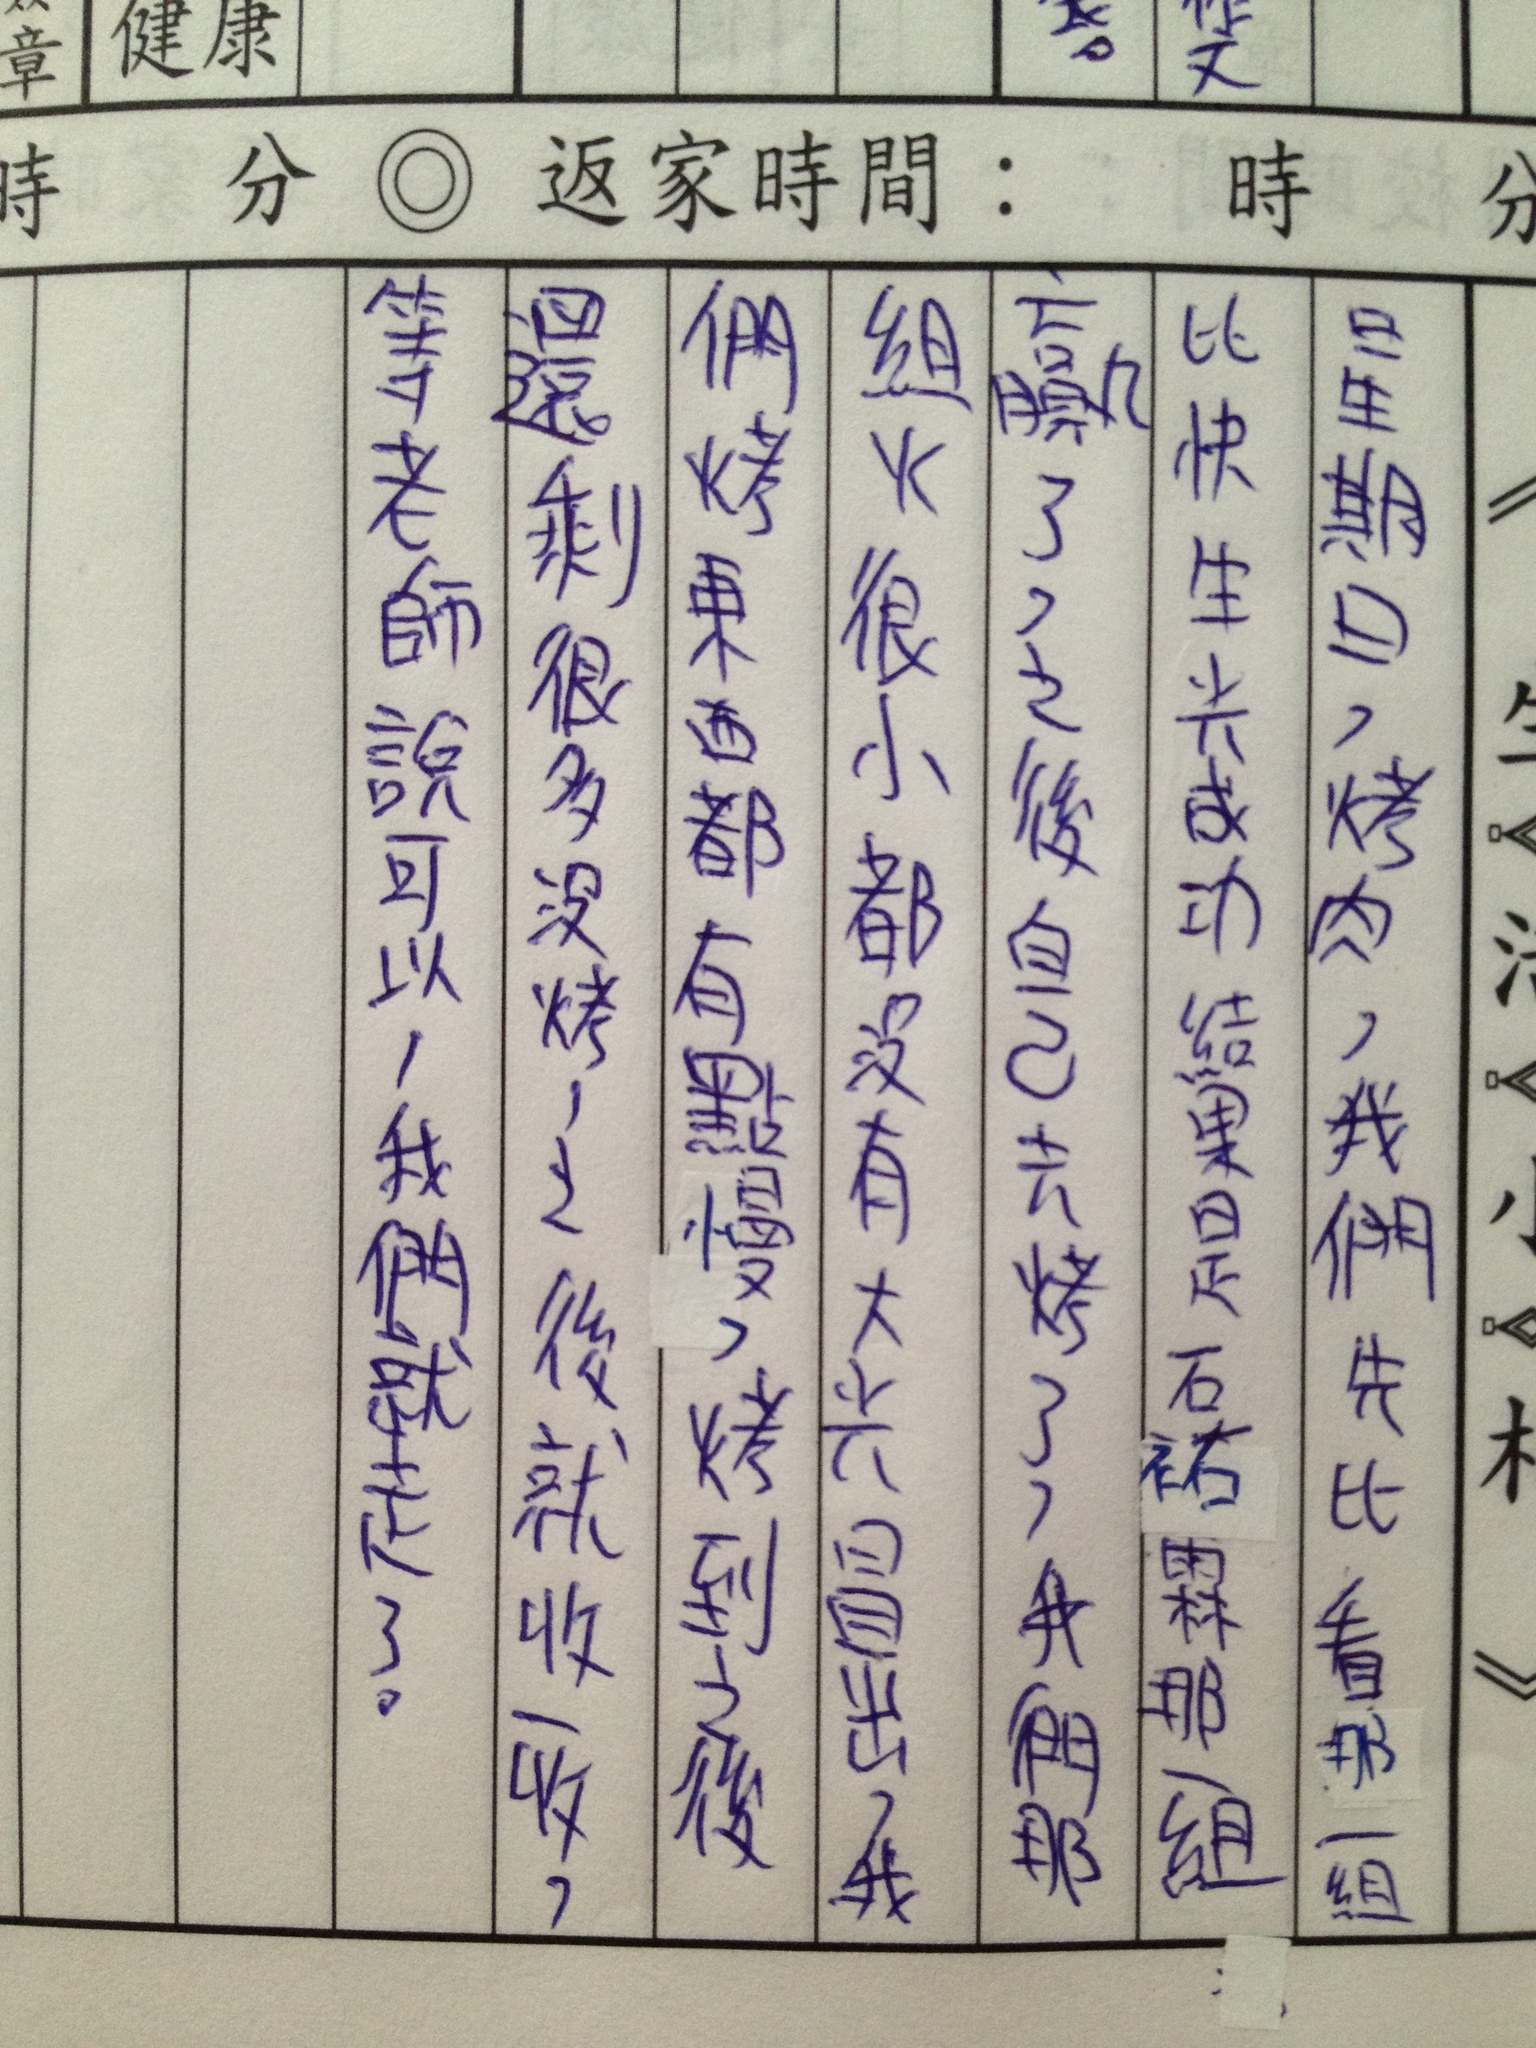 健康
章
作文
時 分◎返家時間： 時 分
《生活小札》
星期日，烤肉，我們先比看那一組
比快生火成功結果是石祐霖那一組
贏了，之後自己去烤了，我們那
組火很小都沒有大火冒出，我
們烤東西都有點慢，烤到之後
還剩很多沒烤，之後就收一收，
等老師說可以，我們就走了。